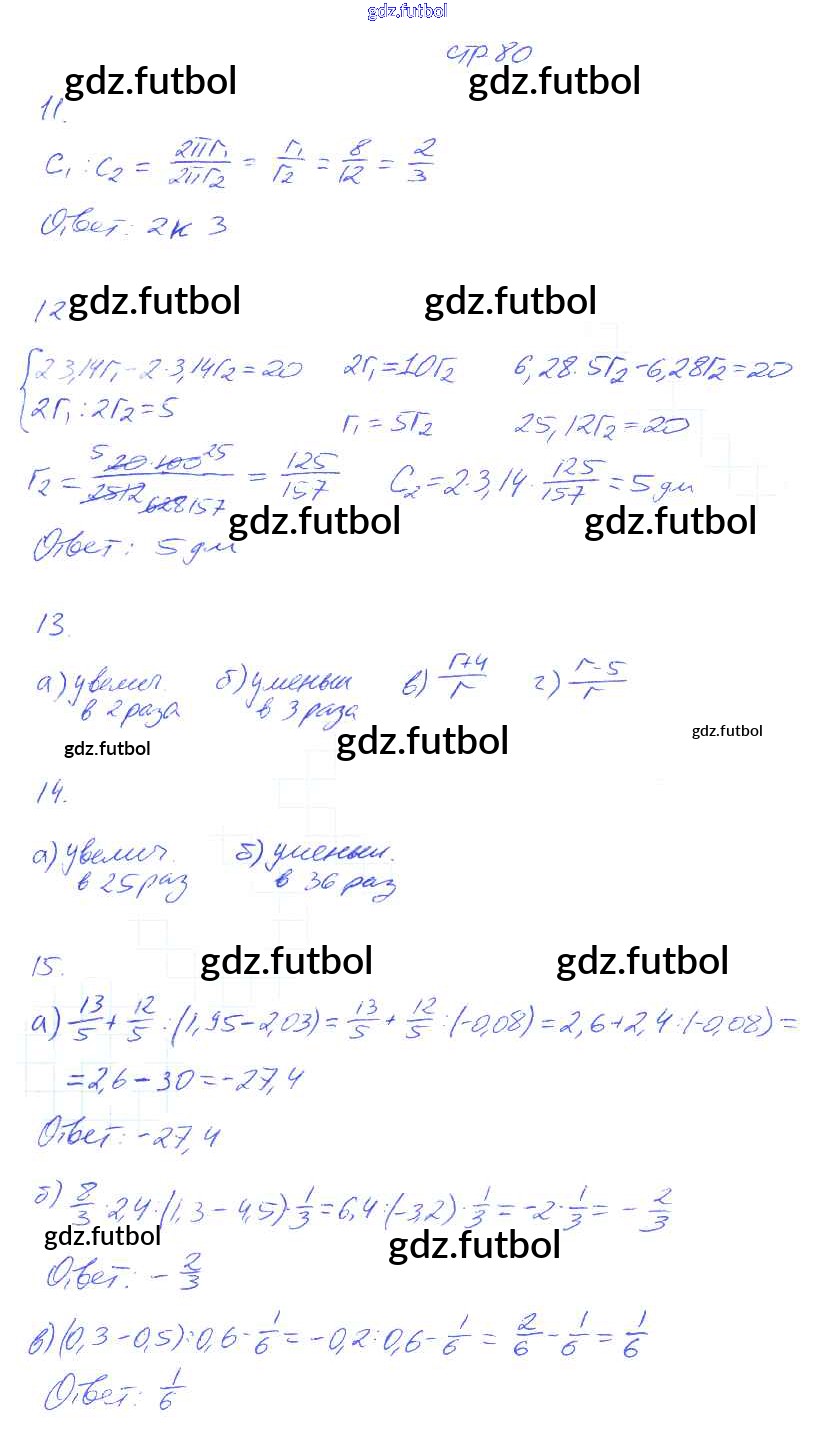 gdz.futbol
стр 80
gdz.futbol gdz.futbol
11.
C₁ : C₂ = 2πr₁/2πr₂ = r₁/r₂ = 8/12 = 2/3
Ответ: 2 к 3
12 gdz.futbol gdz.futbol
{2 3,14r₁ - 2·3,14r₂ = 20 2r₁ = 10r₂ 6,28·5r₂ - 6,28r₂ = 20
2r₁ : 2r₂ = 5 r₁ = 5r₂ 25,12r₂ = 20
r₂ = 5 20·100 25/2512 628 157 = 125/157 C₂ = 2·3,14·125/157 = 5 дм
gdz.futbol gdz.futbol
Ответ: 5 дм
13.
а) увелич. б) уменьш в) r+4/r г) r-5/r
в 2 раза в 3 раза
gdz.futbol gdz.futbol gdz.futbol
14.
а) увелич. б) уменьш.
в 25 раз в 36 раз
15. gdz.futbol gdz.futbol
а) 13/5 + 12/5 : (1,95 - 2,03) = 13/5 + 12/5 : (-0,08) = 2,6 + 2,4 : (-0,08) =
= 2,6 - 30 = -27,4
Ответ: -27,4
б) 8/3 · 2,4 : (1,3 - 4,5) · 1/3 = 6,4 : (-3,2) · 1/3 = -2 · 1/3 = - 2/3
gdz.futbol gdz.futbol
Ответ: - 2/3
в) (0,3 - 0,5) : 0,6 - 1/6 = -0,2 : 0,6 - 1/6 = 2/6 - 1/6 = 1/6
Ответ: 1/6